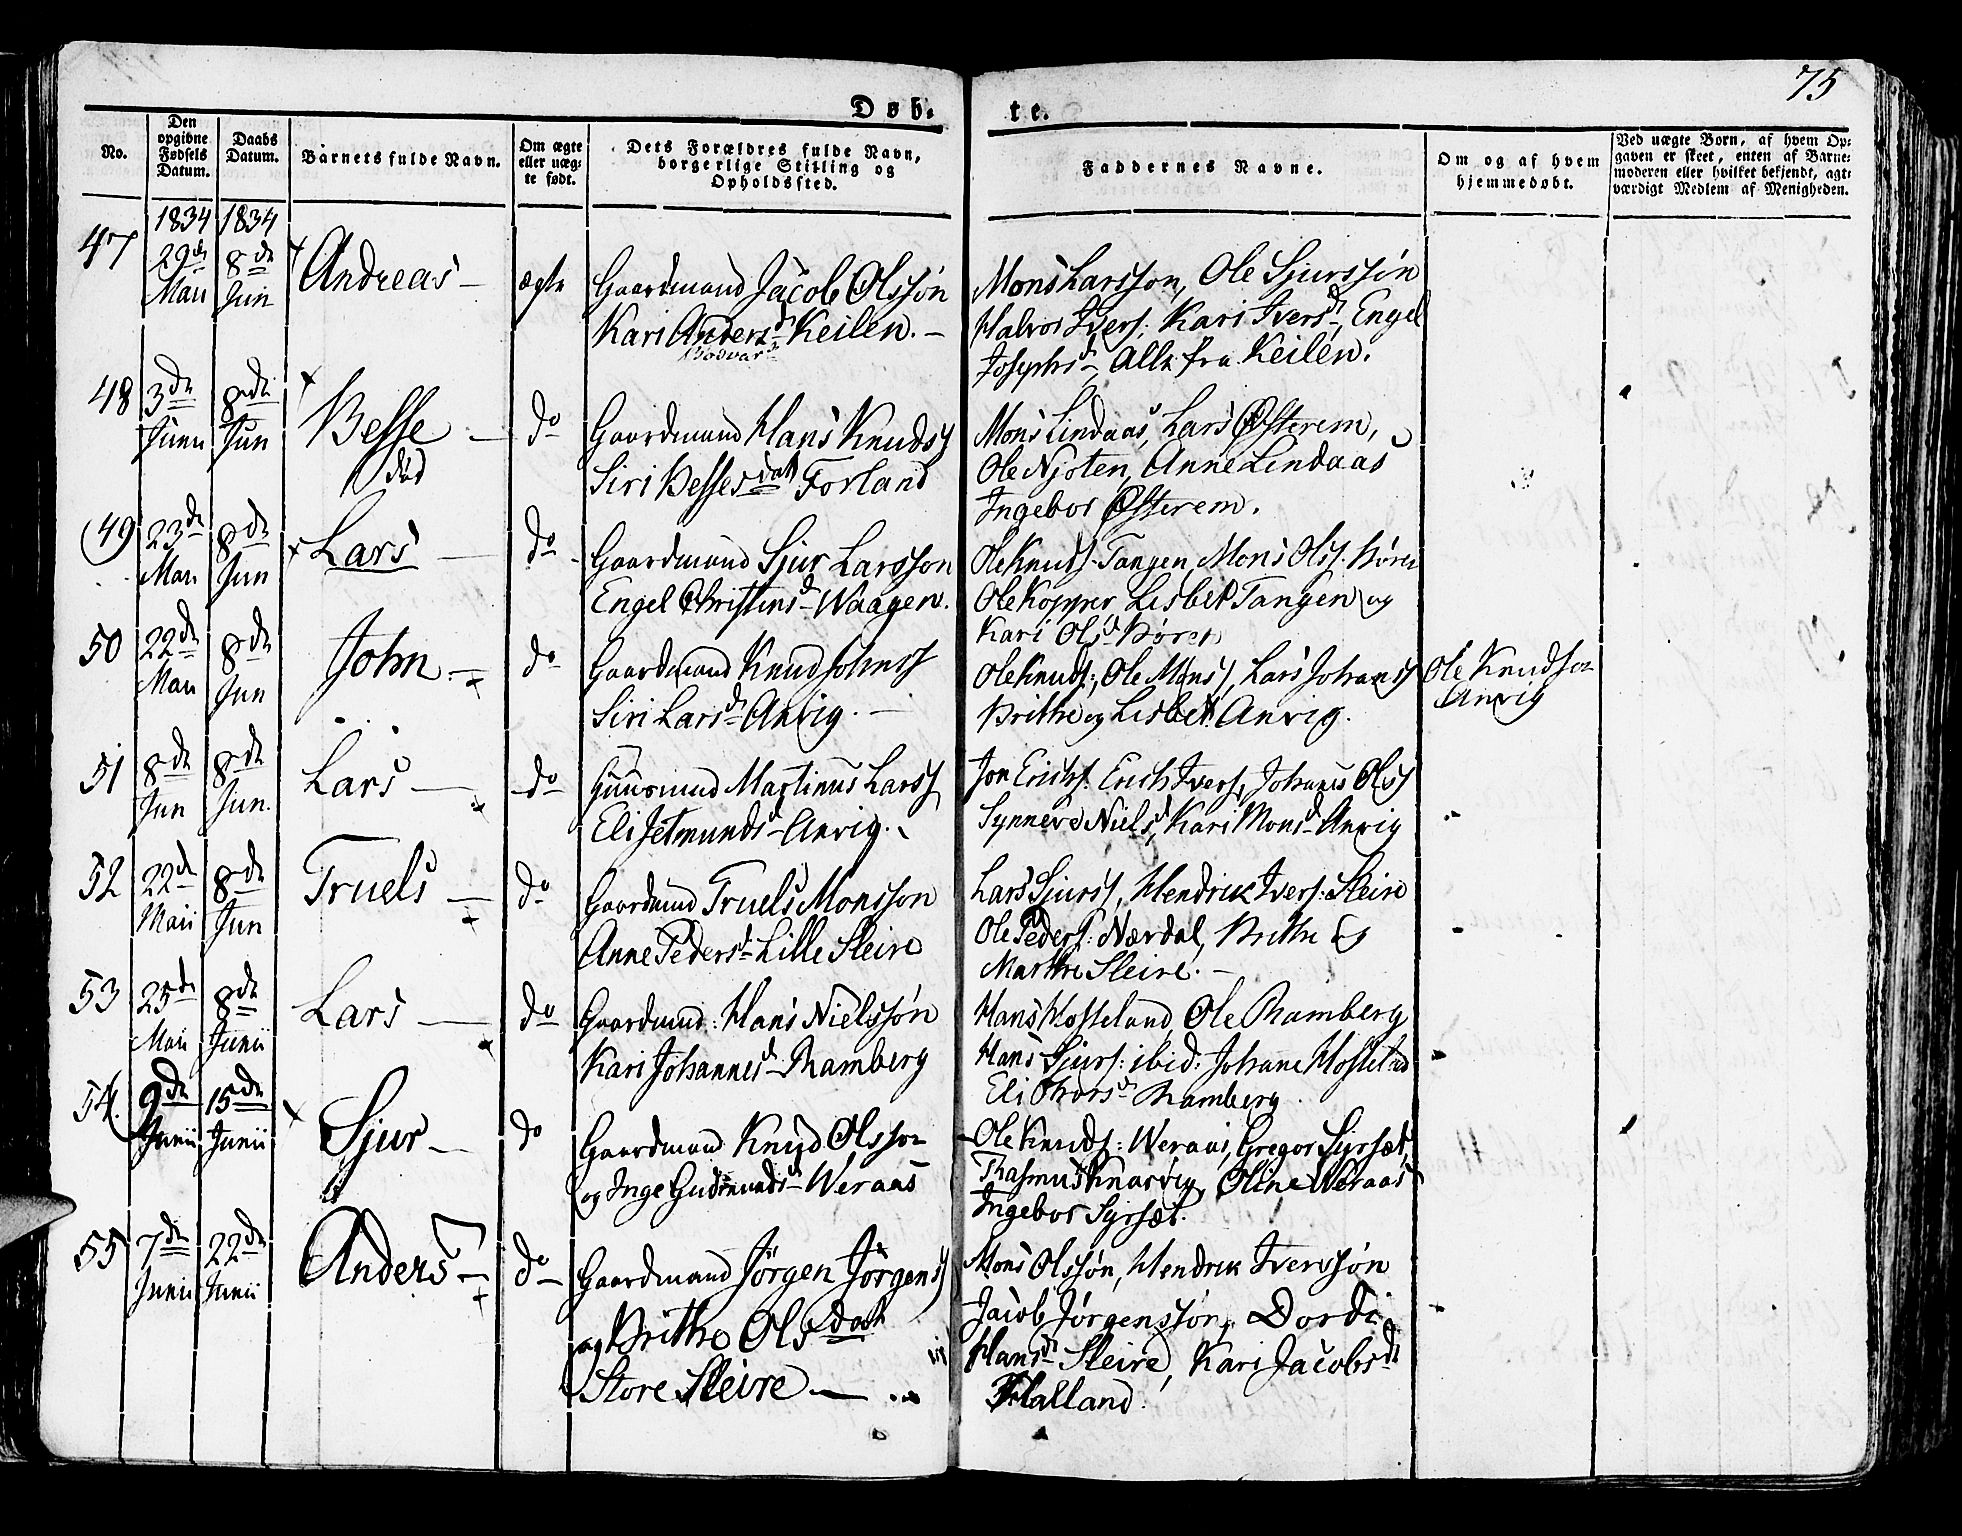 75
Døb- te.
No.
Den opgivne Fødsels Datum.
Daabs Datum.
Barnets fulde Navn.
Om ægte eller uæg- te født.
Dets Forældres fulde Navn, borgerlige Stilling og Opholdssted.
Faddernes Navne.
Om og af hvem hjemmedøbt.
Ved uægte Børn, af hvem Op- gaven er skeet, enten af Barne- moderen eller hvilket bekjendt, agt- værdigt Medlem af Menigheden.
1834 1834
47 29de Maii 8de Jun Andreas ægte
Gaardmand Jacob Olssøn
Kari Andersd Keilen.
Mons Larsson, Ole Sjurssøn
Halvor Ivers: Kari Iversd, Engel
Josephsd, Alle fra Keilen.
48 3de Junii 8de Jun Besse død do
Gaardmand Hans Knuds
Siri Bessesdatt Forland
Mons Lindaas, Lars Østerem,
Ole Njoten, Anne Lindaas
Ingebor Østerem.
49 23de Maii 8de Jun Lars do
Gaardmand Sjur Larsson
Engel Christensd Waagen.
Ole Knuds. Tangen Mons Olss.
Ole Kopper Lisbet Tangen og
Kari Olsd
50 22de Maii 8de Jun John do
Gaardmand Knud Johnss
Siri Larsd Anvig.
Ole Knuds:, Ole Mons, Lars Johans
Brithe og Lisbet Anvig.
Ole Knudson
Anvig
51 8de Jun 8de Jun. Lars do
Martinus Larss
Eli Jetmundsd Anvig.
Jon Erichs. Erich Ivers, Johannes Olss
Synneve Nielsd, Kari Monsd Anvig
52 22de Maii 8de Jun Truels do
Gaardmand Truels Monsson
Anne Pedersd Lille Sleire
Lars Sjurss, Hendrik Ivers. Sleire
Ole Peders: Nærdal, Brithe og
Marthe Sleire.
53 25de Maii 8de Junii Lars do
Gaardmand: Hans Nielssøn
Kari Johannesd Ramberg
Hans Hosteland Ole Ramberg
Hans Sjurs: ibid: Johane Hosteland
Eli Thorsd Ramberg
54. 9de Junii 15de Junii Sjur do
Gaardmand Knud Olsson
og Inge Gudmundsd Weraas
Ole Knuds: Weraas, Gregor Syrsæt,
Rasmus Knarvig, Oline Weraas
Ingebor Syrsæt.
55 7de Junii 22de Junii Anders do
Gaardmand Jörgen Jörgens
og Brithe Olsdatt
Store Sleire
Mons Olssøn, Hendrik Iverssøn
Jacob Jørgenssøn, Dordi
Hansd Sleire, Kari Jacobsd
Halland.